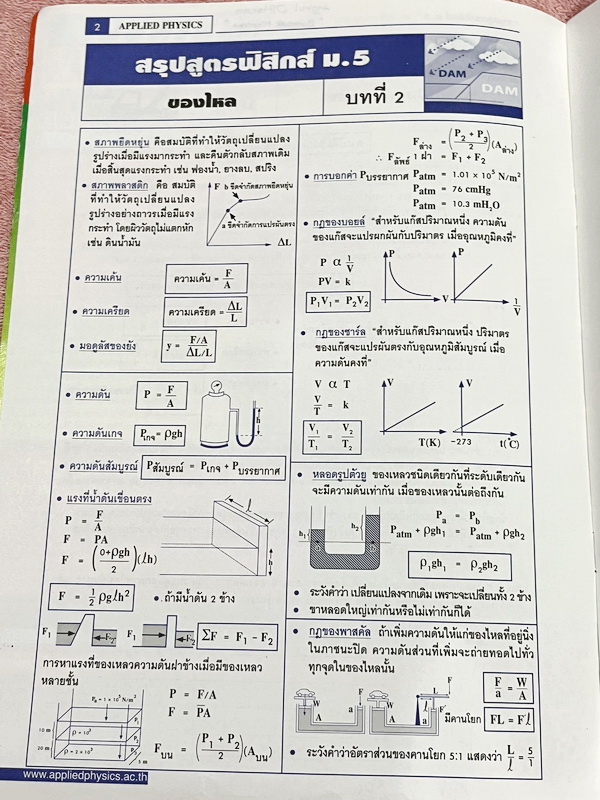 2 APPLIED PHYSICS
สรุปสูตรฟิสิกส์ ม.5
ของไหล
บทที่ 2
DAM
DAM
• สภาพยืดหยุ่น คือสมบัติที่ทำให้วัตถุเปลี่ยนแปลง
รูปร่างเมื่อมีแรงมากระทำ และคืนตัวกลับสภาพเดิม
เมื่อสิ้นสุดแรงกระทำ เช่น ฟองน้ำ, ยางลบ, สปริง
• สภาพพลาสติก คือ สมบัติ
ที่ทำให้วัตถุเปลี่ยนแปลง
รูปร่างอย่างถาวรเมื่อมีแรง
กระทำ โดยผิววัตถุไม่แตกหัก
เช่น ดินน้ำมัน
F
b ขีดจำกัดสภาพยืดหยุ่น
a ขีดจำกัดการแปรผันตรง
ΔL
• ความเค้น
ความเค้น = F/A
• ความเครียด
ความเครียด = ΔL/L
• มอดูลัสของยัง
y = F/A / ΔL/L
• ความดัน
P = F/A
h
• ความดันเกจ
Pเกจ = ρgh
• ความดันสัมบูรณ์
Pสัมบูรณ์ = Pเกจ + Pบรรยากาศ
• แรงที่น้ำดันเขื่อนตรง
P = F/A
F = PA
F = (0+ρgh / 2)(ℓh)
F = 1/2 ρgℓh²
h
• ถ้ามีน้ำดัน 2 ข้าง
F₁ F₂ F₁ F₂
ΣF = F₁ - F₂
การหาแรงที่ของเหลวความดันฝาข้างเมื่อมีของเหลว
หลายชั้น
P = F/A
F = P̄A
Fบน = (P₁ + P₂ / 2)(Aบน)
10 m
20 m
P₁
P₂
P₃
5m
Fล่าง = (P₂ + P₃ / 2)(Aล่าง)
∴ Fลัพธ์ 1 ฝา = F₁ + F₂
• การบอกค่า Pบรรยากาศ Patm = 1.01 × 10⁵ N/m²
Patm = 76 cmHg
Patm = 10.3 mH₂O
• กฎของบอยล์ "สำหรับแก๊สปริมาณหนึ่ง ความดัน
ของแก๊สจะแปรผกผันกับปริมาตร เมื่ออุณหภูมิคงที่"
P α 1/V
PV = k
P₁V₁ = P₂V₂
P
V
P
1/V
• กฎของชาร์ล "สำหรับแก๊สปริมาณหนึ่ง ปริมาตร
ของแก๊สจะแปรผันตรงกับอุณหภูมิสัมบูรณ์ เมื่อ
ความดันคงที่"
V α T
V/T = k
V₁/T₁ = V₂/T₂
V
T(K)
V
-273
t(°C)
• หลอดรูปตัวยู ของเหลวชนิดเดียวกันที่ระดับเดียวกัน
จะมีความดันเท่ากัน เมื่อของเหลวนั้นต่อถึงกัน
h₁
h₂
Pa = Pb
Patm + ρgh₁ = Patm + ρgh₂
ρ₁gh₁ = ρ₂gh₂
• ระวังคำว่า เปลี่ยนแปลงจากเดิม เพราะจะเปลี่ยนทั้ง 2 ข้าง
• ขาหลอดใหญ่เท่ากันหรือไม่เท่ากันก็ได้
• กฎของพาสคัล ถ้าเพิ่มความดันให้แก่ของไหลที่อยู่นิ่ง
ในภาชนะปิด ความดันส่วนที่เพิ่มจะถ่ายทอดไปทั่ว
ทุกจุดในของไหลนั้น
W
A
F
a
W
A
L
F
ℓ
F′
a
มีคานโยก
F/a = W/A
FL = F′ℓ
• ระวังคำว่าอัตราส่วนของคานโยก 5:1 แสดงว่า L/ℓ = 5/1
www.appliedphysics.ac.th